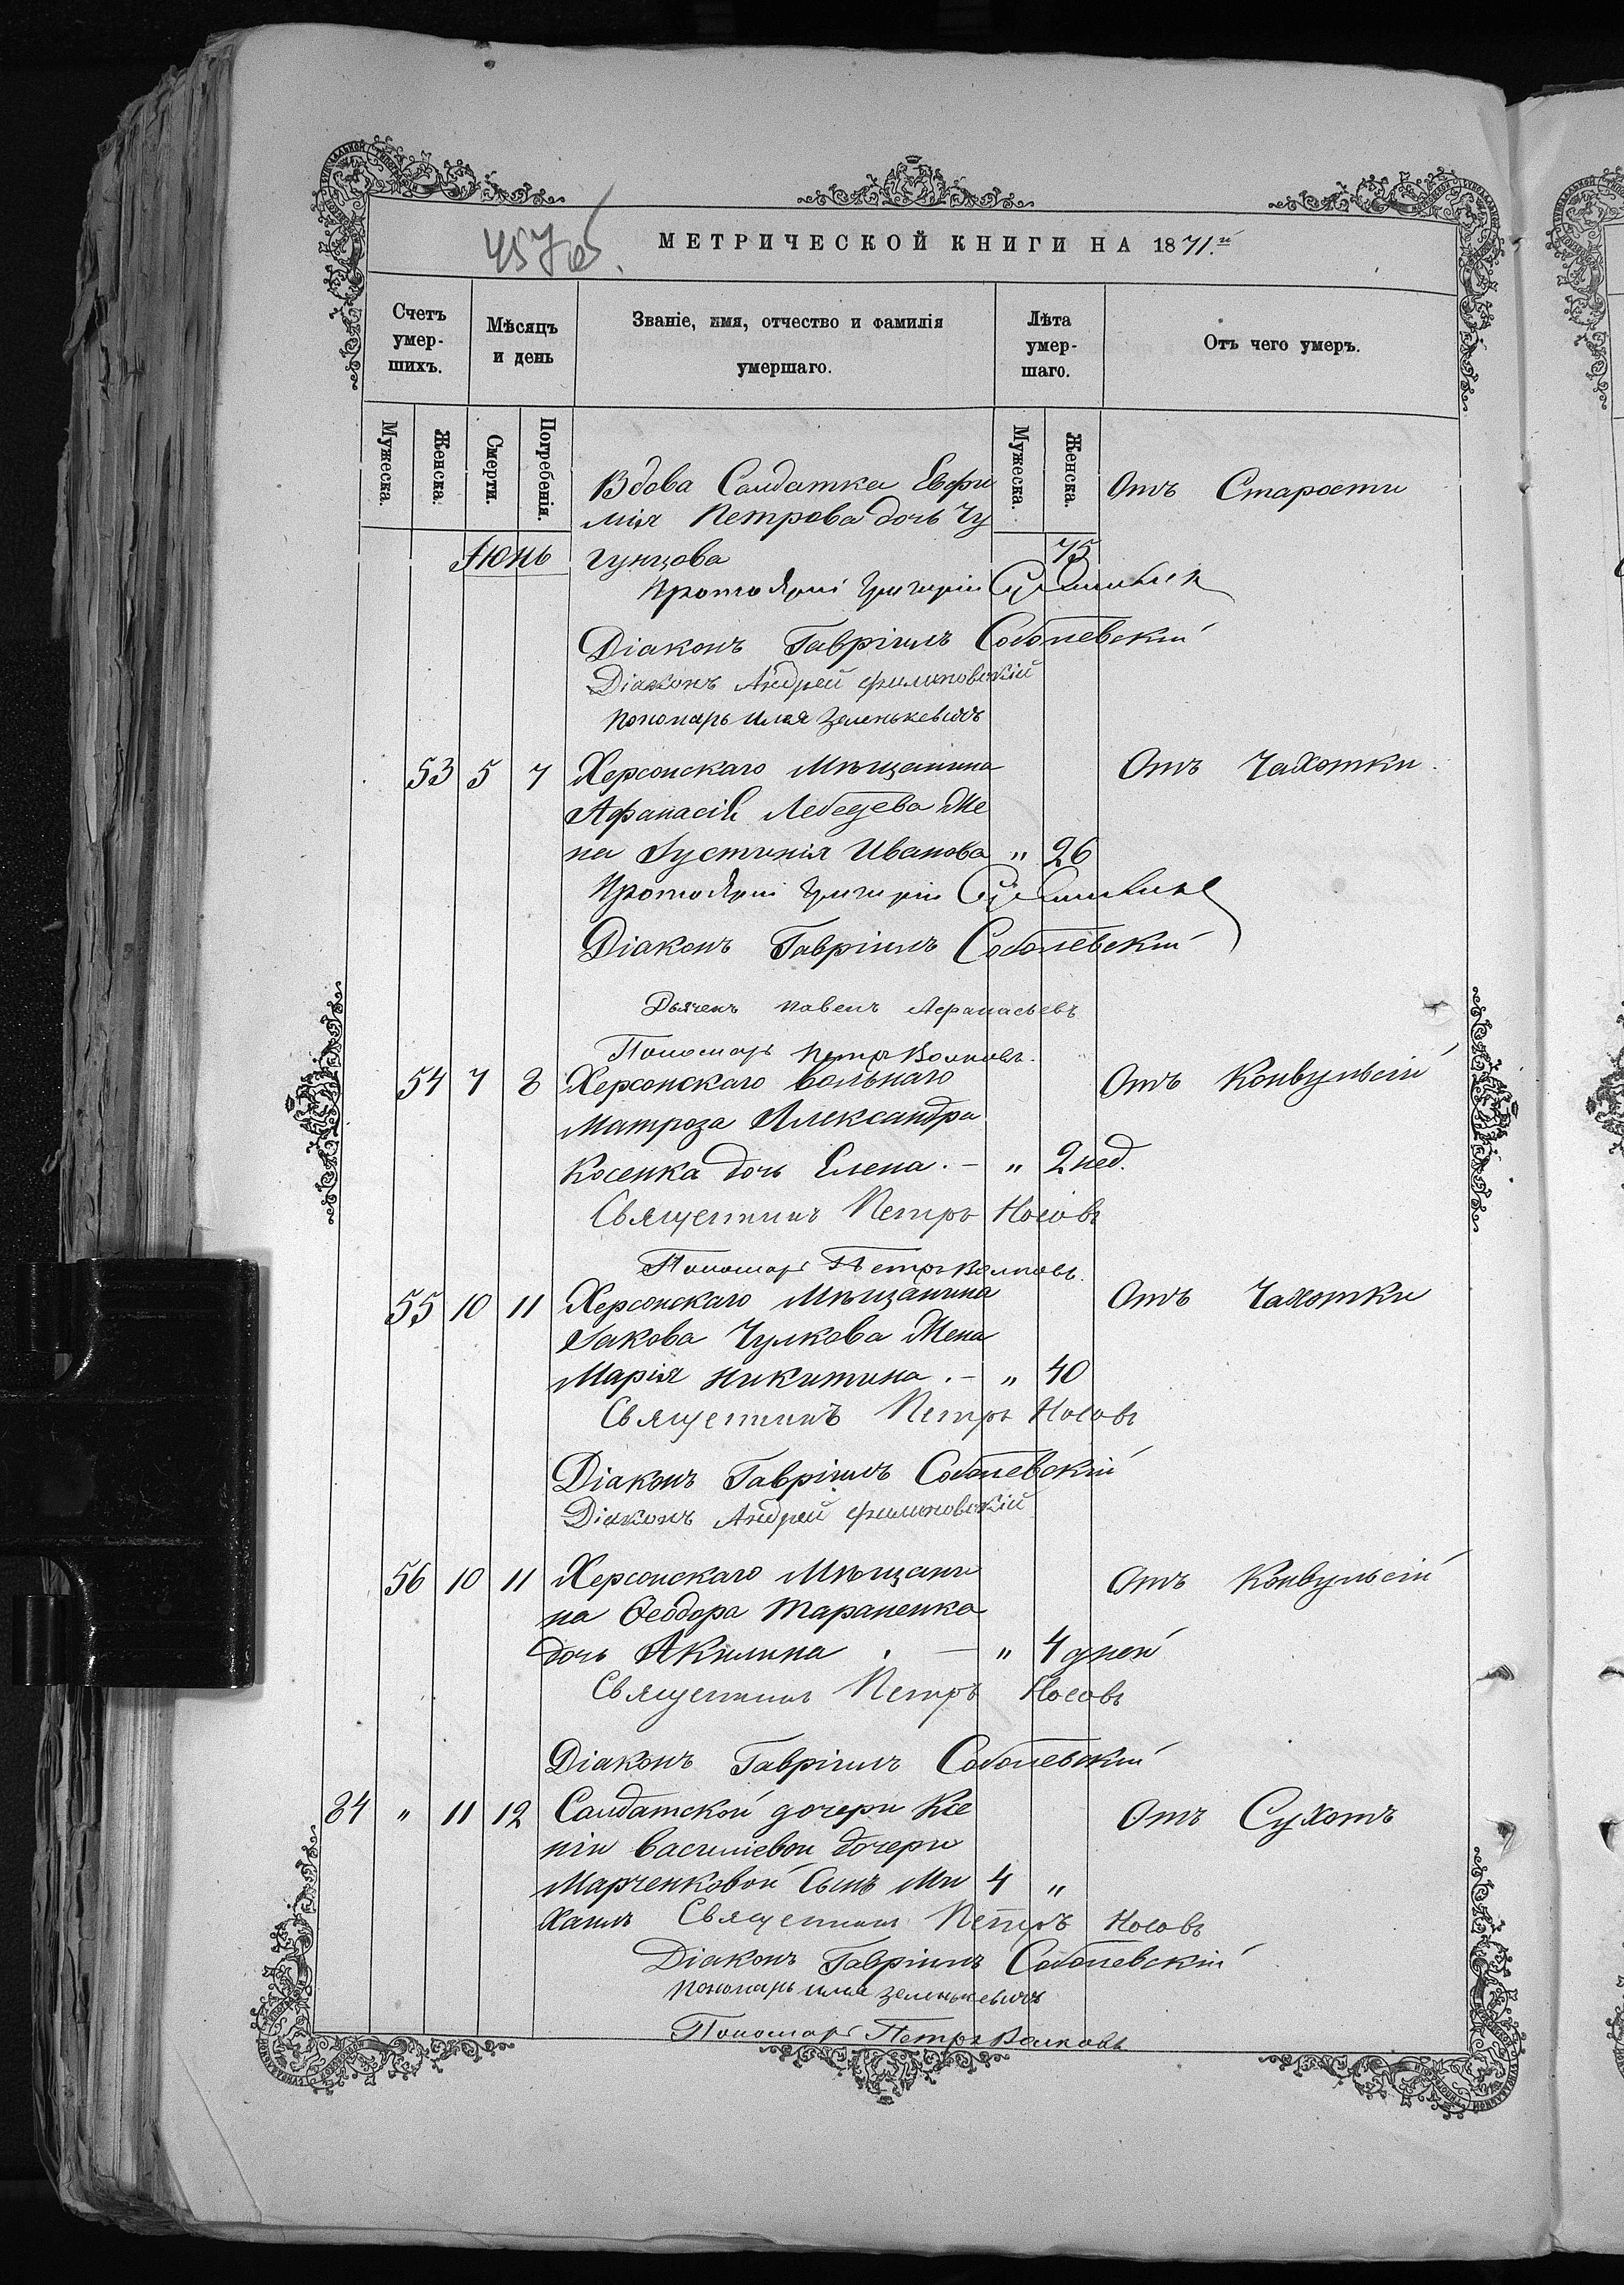 457об.
МЕТРИЧЕСКОЙ КНИГИ НА 1871.й
Счетъ умер- шихъ.
Мѣсяцъ и день
Званіе, имя, отчество и фамилія умершаго.
Лѣта умер- шаго.
Отъ чего умеръ.
Мужеска. Женска. Смерти. Погребенія. Мужеска. Женска.
Вдова Солдатка Евфи Отъ Старости
мія Петрова дочь Чу
Іюнь гунцова 75
Григорій
Діаконъ Гавріилъ Соболевскій
Діаконъ Андрей Филиповскій
Пономарь Илія Зеленькевичъ
53 5 7 Херсонскаго Мѣщанина Отъ Чахотки.
Афанасія Лебедева Же
на Іустинія Иванова " 26
Григорій
Діаконъ Гавріилъ Соболевскій
Дьячекъ Павелъ Афанасьевъ
Пономарь Петръ Волковъ.
54 7 8 Херсонскаго вольнаго Отъ Конвульсій
Матроза Александра
Косенка дочь Елена. — " 2 нед.
Священникъ Петръ Носовъ
Пономарь Петръ Волковъ.
55 10 11 Херсонскаго Мѣщанина Отъ Чахотки
Іакова Чулкова Жена
Марія Никитина. — " 40
Священникъ Петръ Носовъ
Діаконъ Гавріилъ Соболевскій
Діаконъ Андрей Филиповскій
56 10 11 Херсонскаго Мѣщани Отъ Конвульсій
на Ѳеодора Тараненка
дочь Акилина. — " 4 дней
Священникъ Петръ Носовъ
Діаконъ Гавріилъ Соболевскій
84 " 11 12 Солдатской дочери Ксе Отъ Сухотъ
ніи Василіевои дочери
Марченковой Сынъ Ми 4 "
хаилъ Священникъ Петръ Носовъ
Діаконъ Гавріилъ Соболевскій
Пономарь Илія Зеленькевичъ
Пономарь Петръ Волковъ